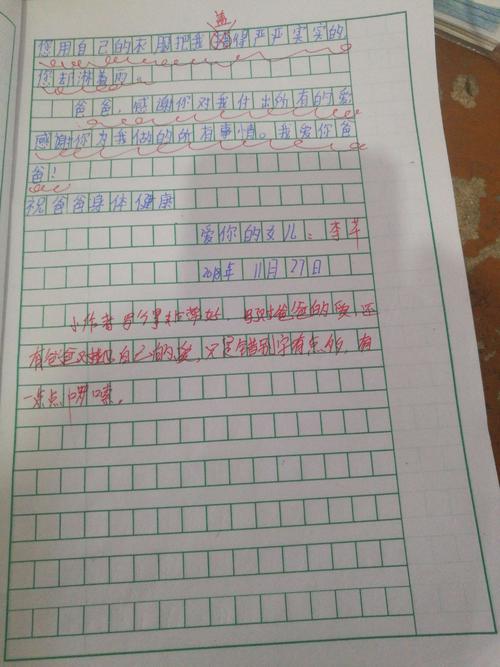 盖
您用自己的衣服把我得严严实实的
您却淋着雨。
爸爸，感谢你对我付出所有的爱
感谢你为我做的所有事情。我爱你爸
爸！
祝爸爸身体健康
爱你的女儿：李芊
2018年 11月 27日
小作者写得好，爸爸的爱，还
有爸爸对自己的爱，只是错别字有点多，有
一点啰嗦。